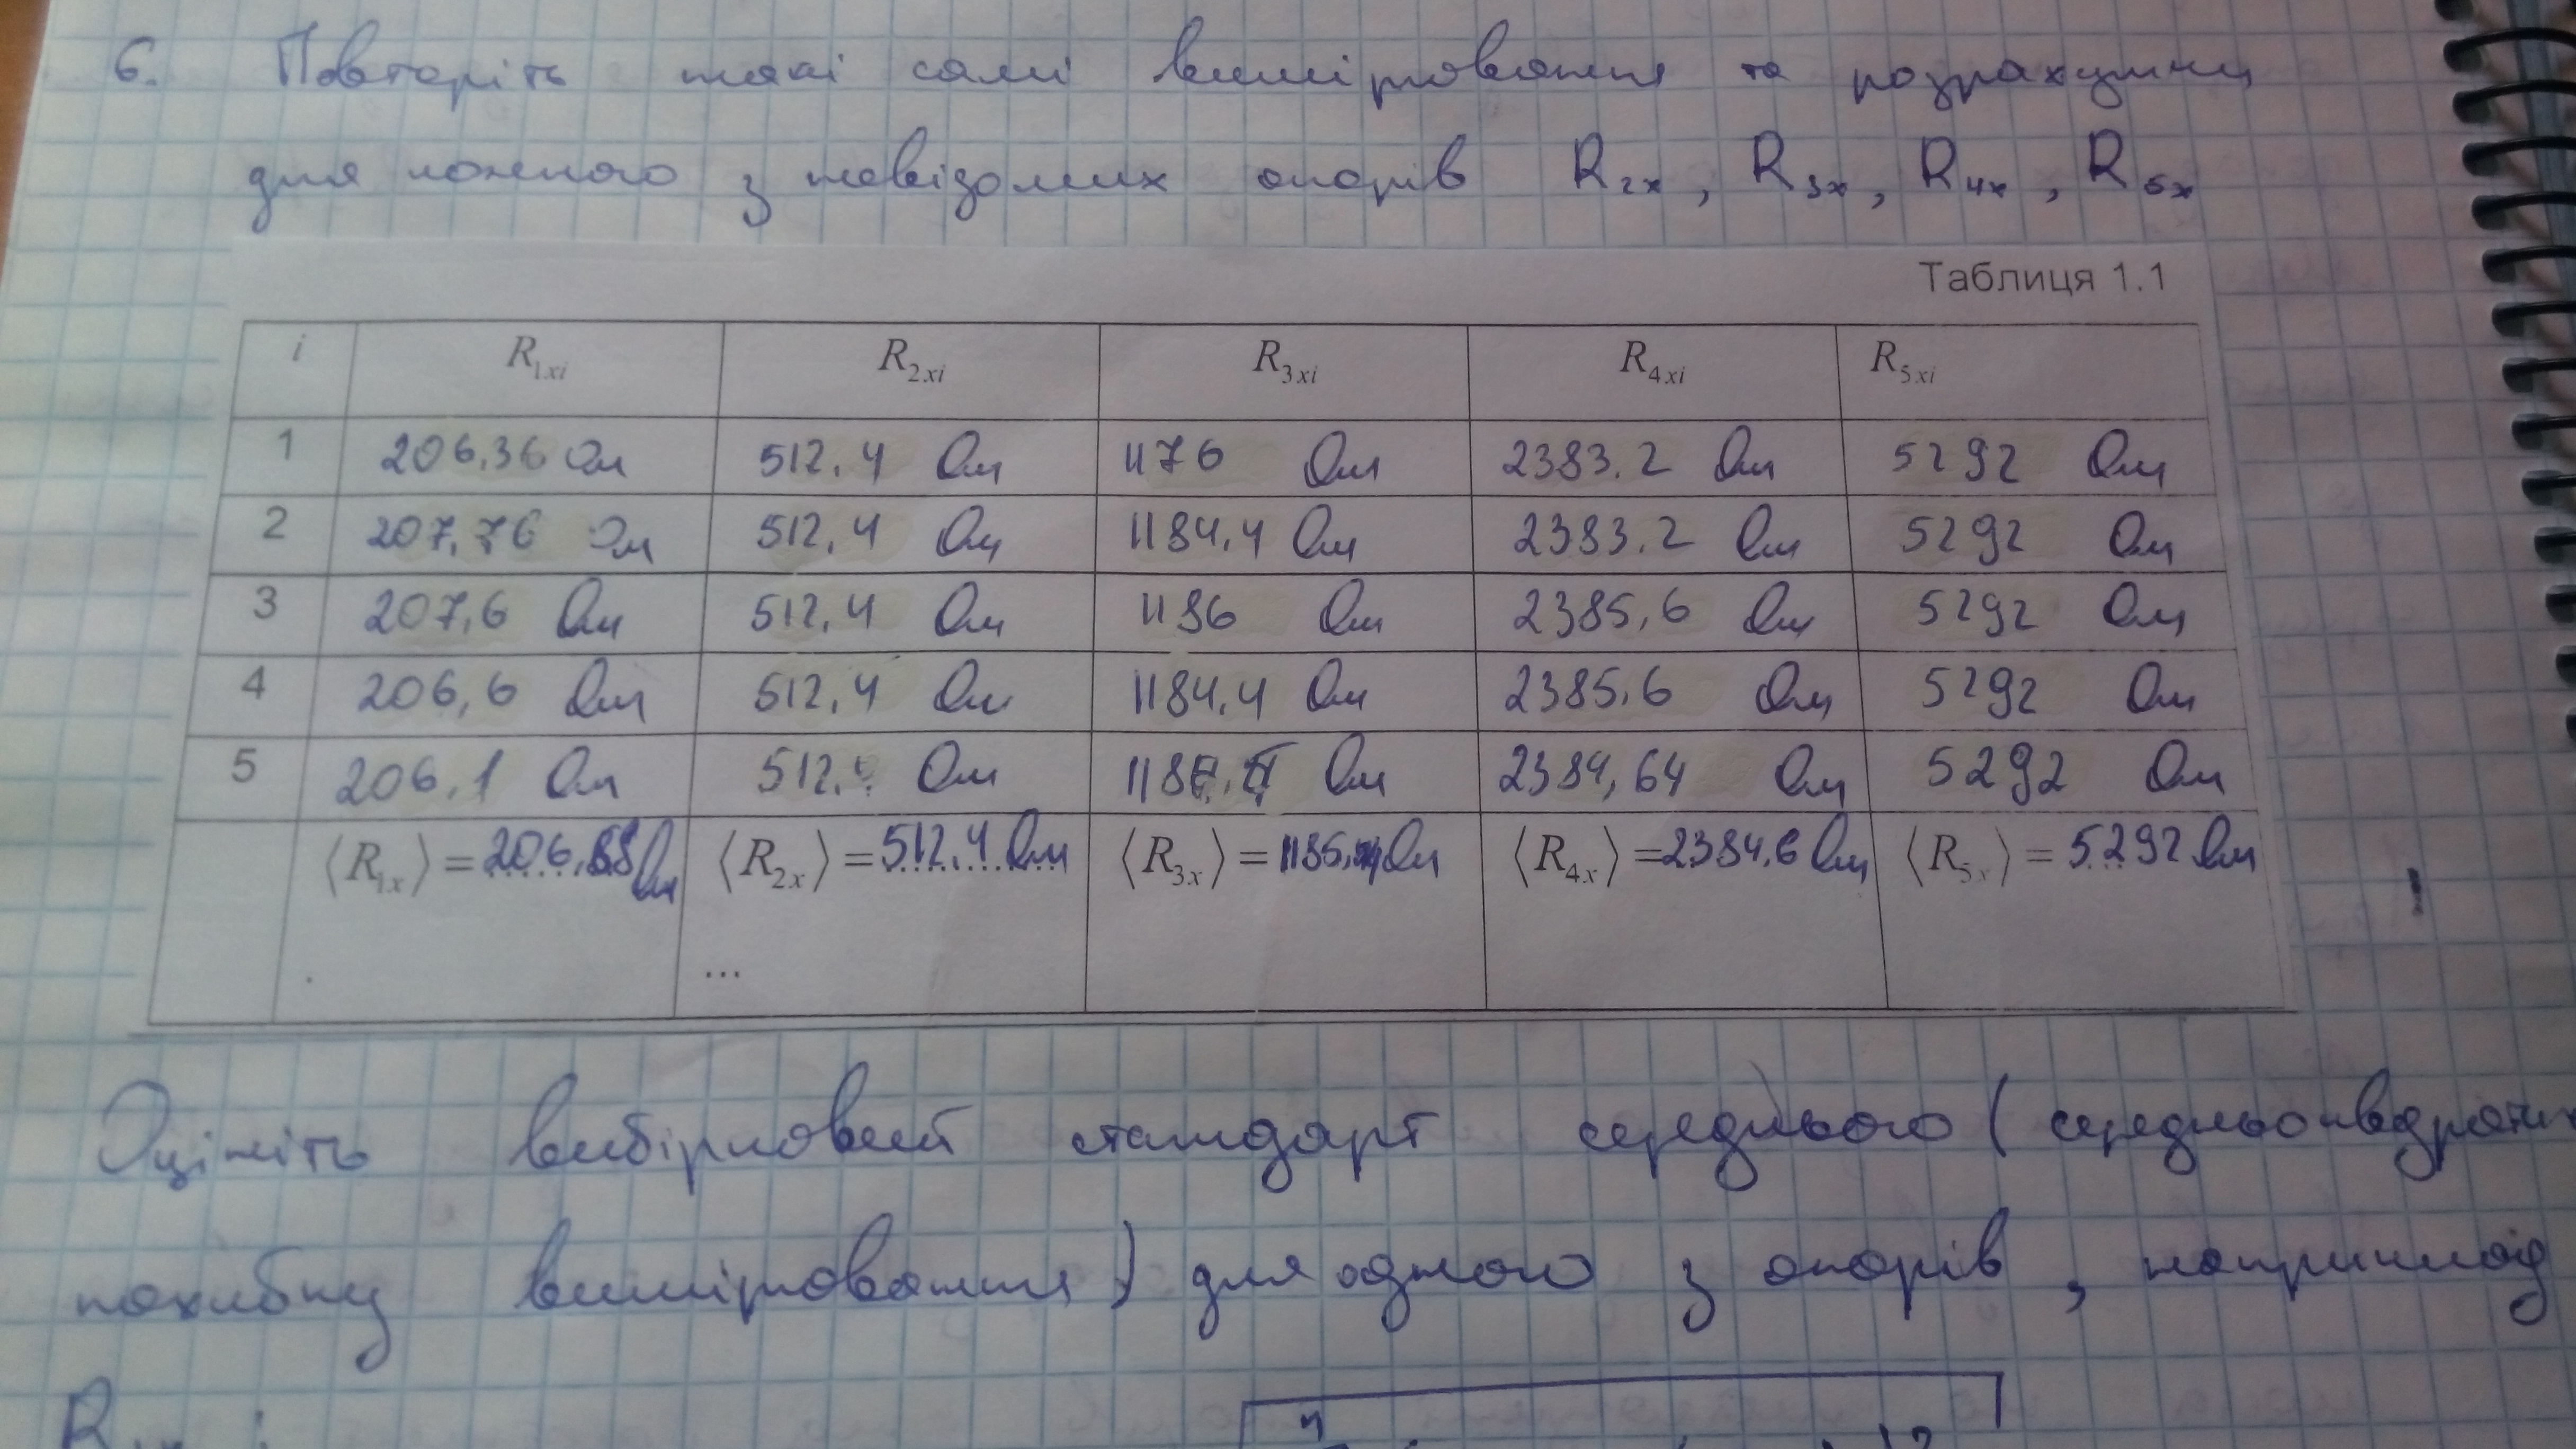 6. Повторіть такі самі вимірювання та розрахунки
для кожного з невідомих опорів R₂ₓ, R₃ₓ, R₄ₓ, R₅ₓ
Таблиця 1.1
i R1xi R2xi R3xi R4xi R5xi
1 206,36 Ом 512,4 Ом 1176 Ом 2383,2 Ом 5292 Ом
2 207,76 Ом 512,4 Ом 1184,4 Ом 2383,2 Ом 5292 Ом
3 207,6 Ом 512,4 Ом 1186 Ом 2385,6 Ом 5292 Ом
4 206,6 Ом 512,4 Ом 1184,4 Ом 2385,6 Ом 5292 Ом
5 206,1 Ом Ом Ом 2384,64 Ом 5292 Ом
⟨R1x⟩ = 206,88 Ом ⟨R2x⟩ = 512,4 Ом ⟨R3x⟩ = Ом ⟨R4x⟩ = 2384,6 Ом ⟨R5x⟩ = 5292 Ом
...
Оцініть вибірковий стандарт середнього (
похибку вимірювання) для одного з опорів, наприклад